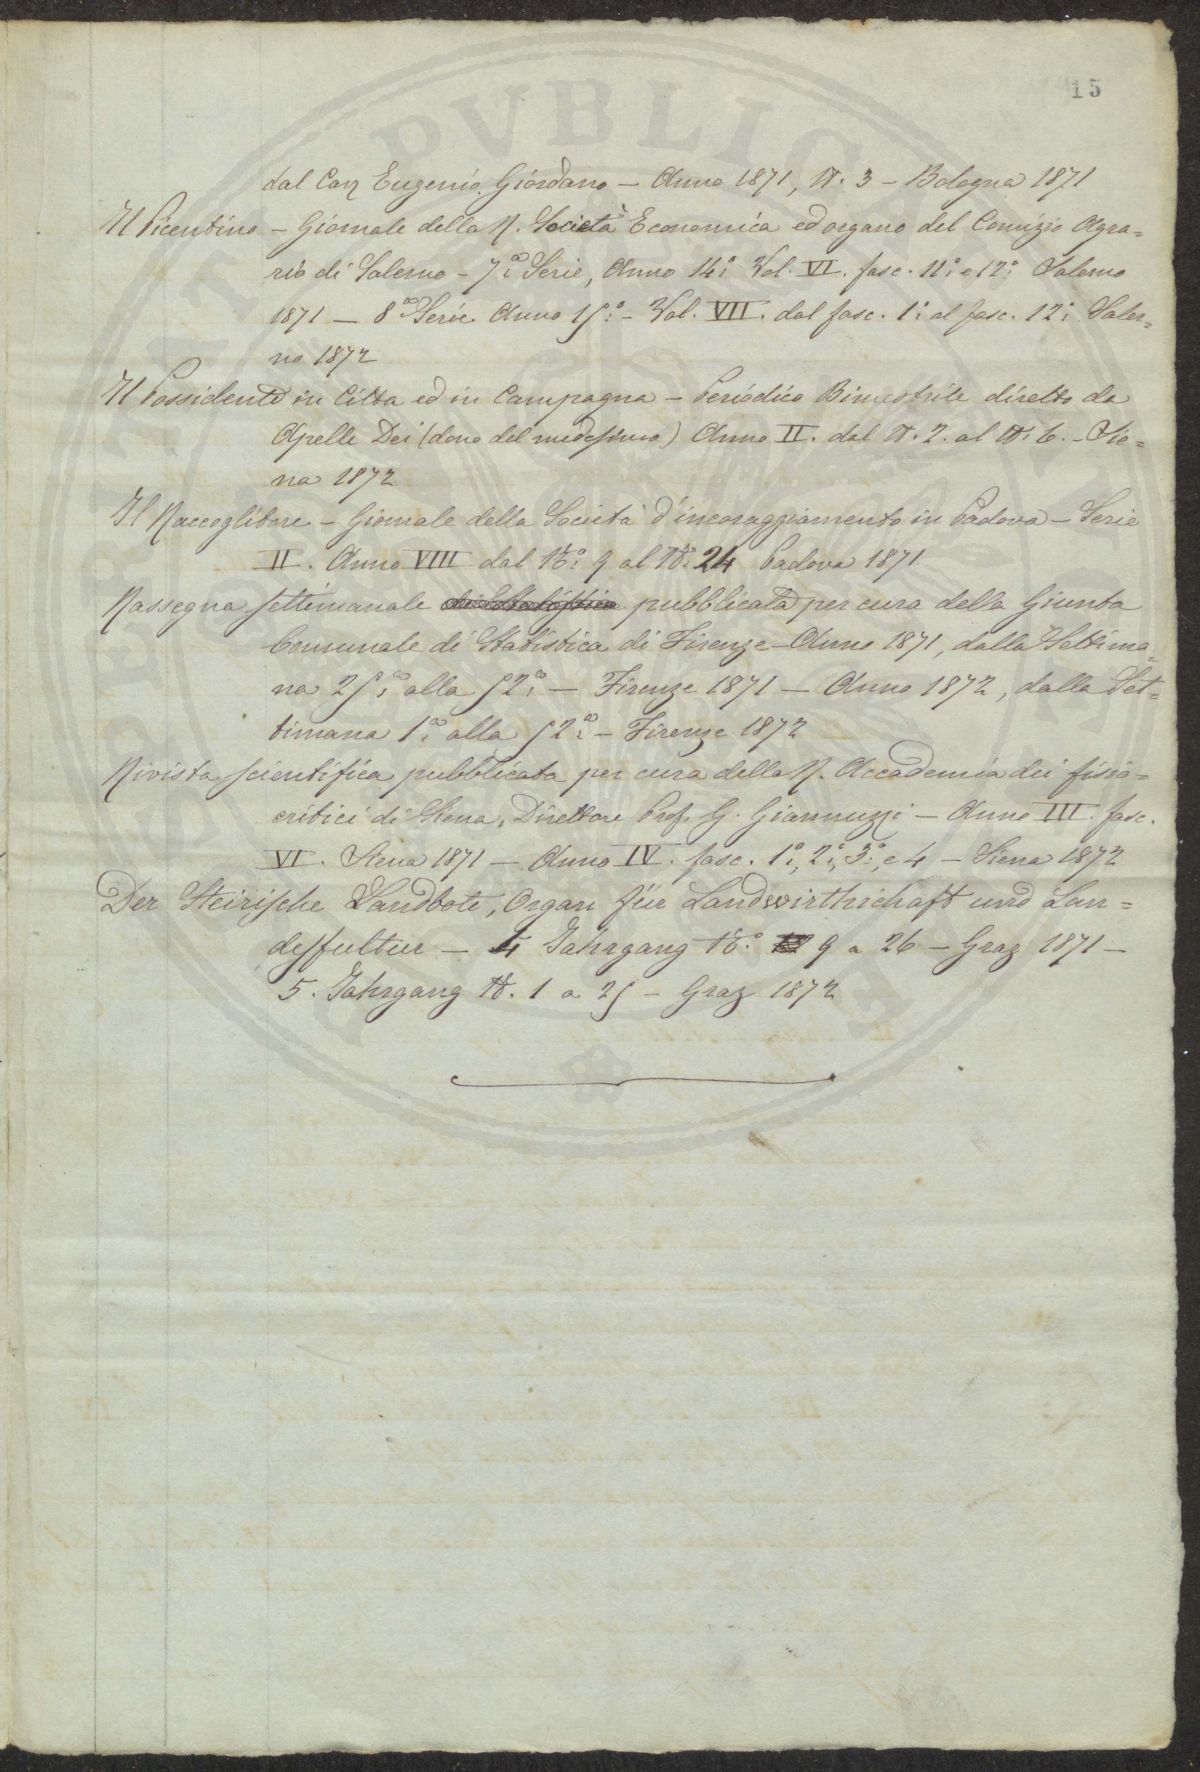 15
dal Cav Eugenio Giordano – Anno 1871, N. 3 – Bologna 1871
Il Picentino – Giornale della R. Società Economica ed organo del Comizio Agra=
rio di Salerno – 7.a Serie, Anno 14.° Vol. VI. fasc. 11.° e 12.° Salerno
1871 – 8.a Serie Anno 15.° – Vol. VII. dal fasc. 1.° al fasc. 12.° Saler=
no 1872
Il Possidente in Città ed in Campagna – Periodico Bimestrile diretto da
Apelle Dei (dono del medesimo) Anno II. dal N. 2. al N. 6. – Sie=
na 1872
Il Raccoglitore – Giornale della Società d'incoraggiamento in Padova – Serie
II. Anno VIII dal N.° 9 al N.° 24 Padova 1871
Rassegna settimanale pubblicata per cura della Giunta
Comunale di Statistica di Firenze – Anno 1871, dalla Settima=
na 25.a alla 52.a – Firenze 1871 – Anno 1872, dalla Set=
timana 1.a alla 52.a – Firenze 1872
Rivista scientifica pubblicata per cura della R. Accademia dei fisio=
critici di Siena, Direttore Prof. G. Giannuzzi – Anno III. fasc.
VI. Siena 1871 – Anno IV. fasc. 1.°, 2.°, 3.°, e 4 – Siena 1872
Der Steirische Landbote, Organ für Landwirthschaft und Lan=
desfultur – 4 Jahrgang N.° 9 a 26 – Graz 1871 –
5. Jahrgang N. 1 a 25 – Graz 1872
PVBLICA